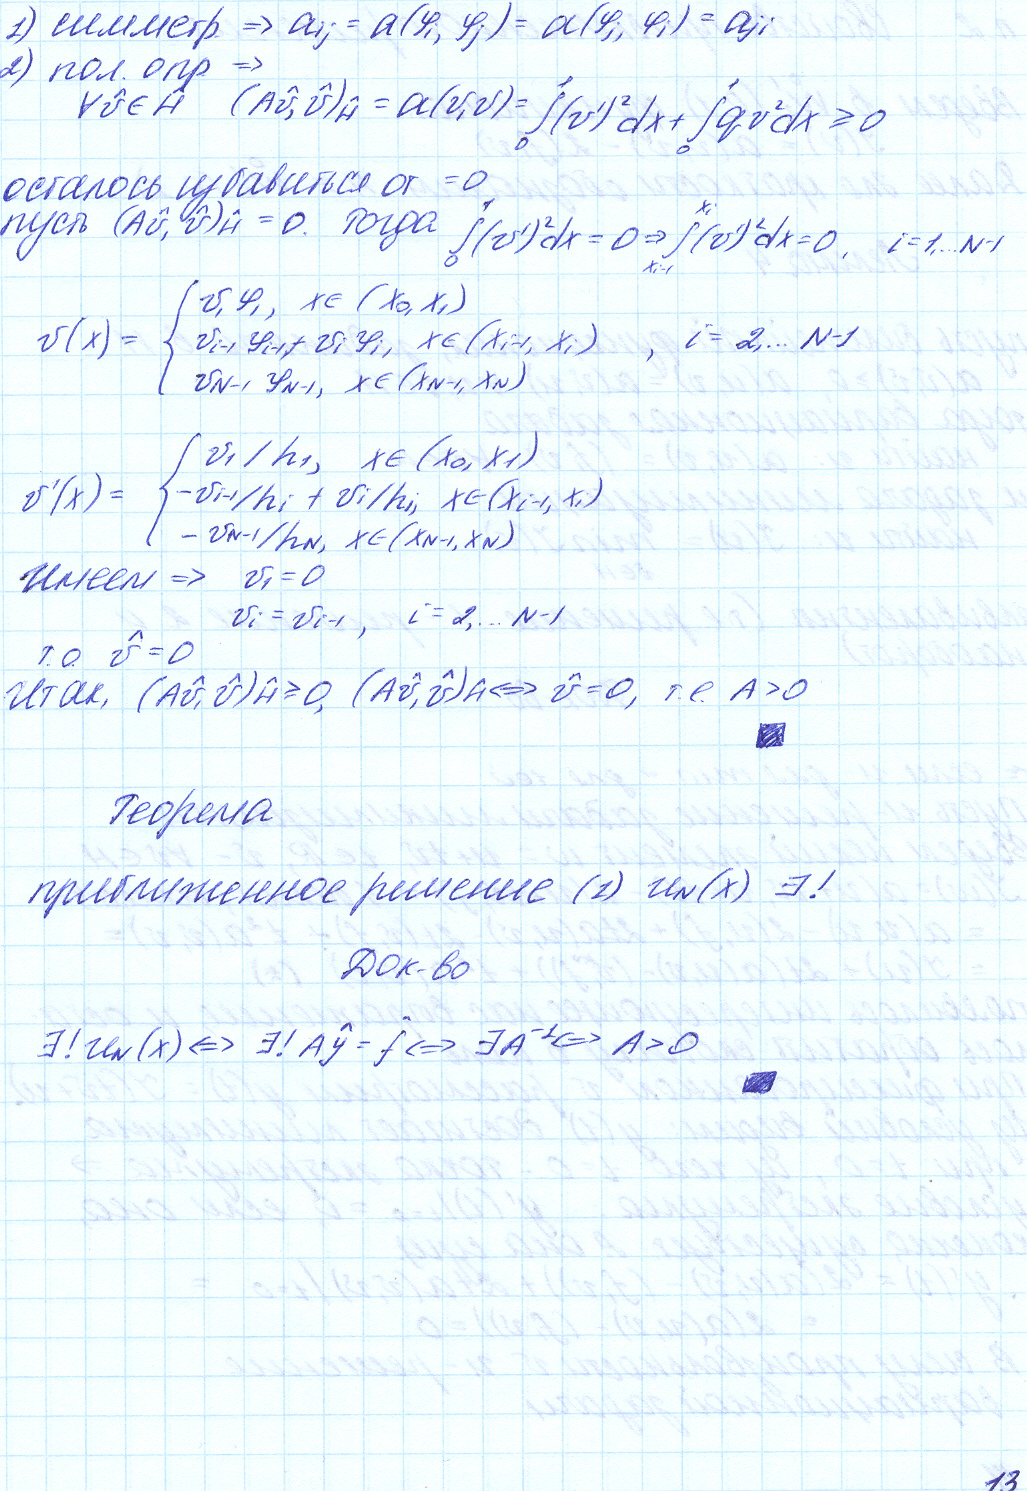 1) симметр ⇒ aij = a(φi, φj) = a(φj, φi) = aji
2) пол. опр ⇒
∀v̂ ∈ Ĥ (Av̂, v̂)Ĥ = a(v, v) = ∫₀¹(v')²dx + ∫₀¹qv²dx ≥ 0
осталось избавиться от = 0
пусть (Av̂, v̂)Ĥ = 0. Тогда ∫₀¹(v')²dx = 0 ⇒ ∫_{xi-1}^{xi}(v')²dx = 0, i = 1,... N-1
v(x) = { v1φ1, x ∈ (x0, x1)
vi-1 φi-1 + vi φi, x ∈ (xi-1, xi) , i = 2,... N-1
vN-1 φN-1, x ∈ (xN-1, xN)
v'(x) = { v1/h1, x ∈ (x0, x1)
-vi-1/hi + vi/hi, x ∈ (xi-1, xi)
-vN-1/hN, x ∈ (xN-1, xN)
Имеем ⇒ v1 = 0
vi = vi-1, i = 2,... N-1
т.о. v̂ = 0
Итак, (Av̂, v̂)Ĥ ≥ 0, (Av̂, v̂)Ĥ ⇔ v̂ = 0, т.е. A > 0
Теорема
приближенное решение (1) uN(x) ∃!
Док-во
∃! uN(x) ⇔ ∃! Aŷ = f̂ ⇔ ∃A⁻¹ ⇔ A > 0
13